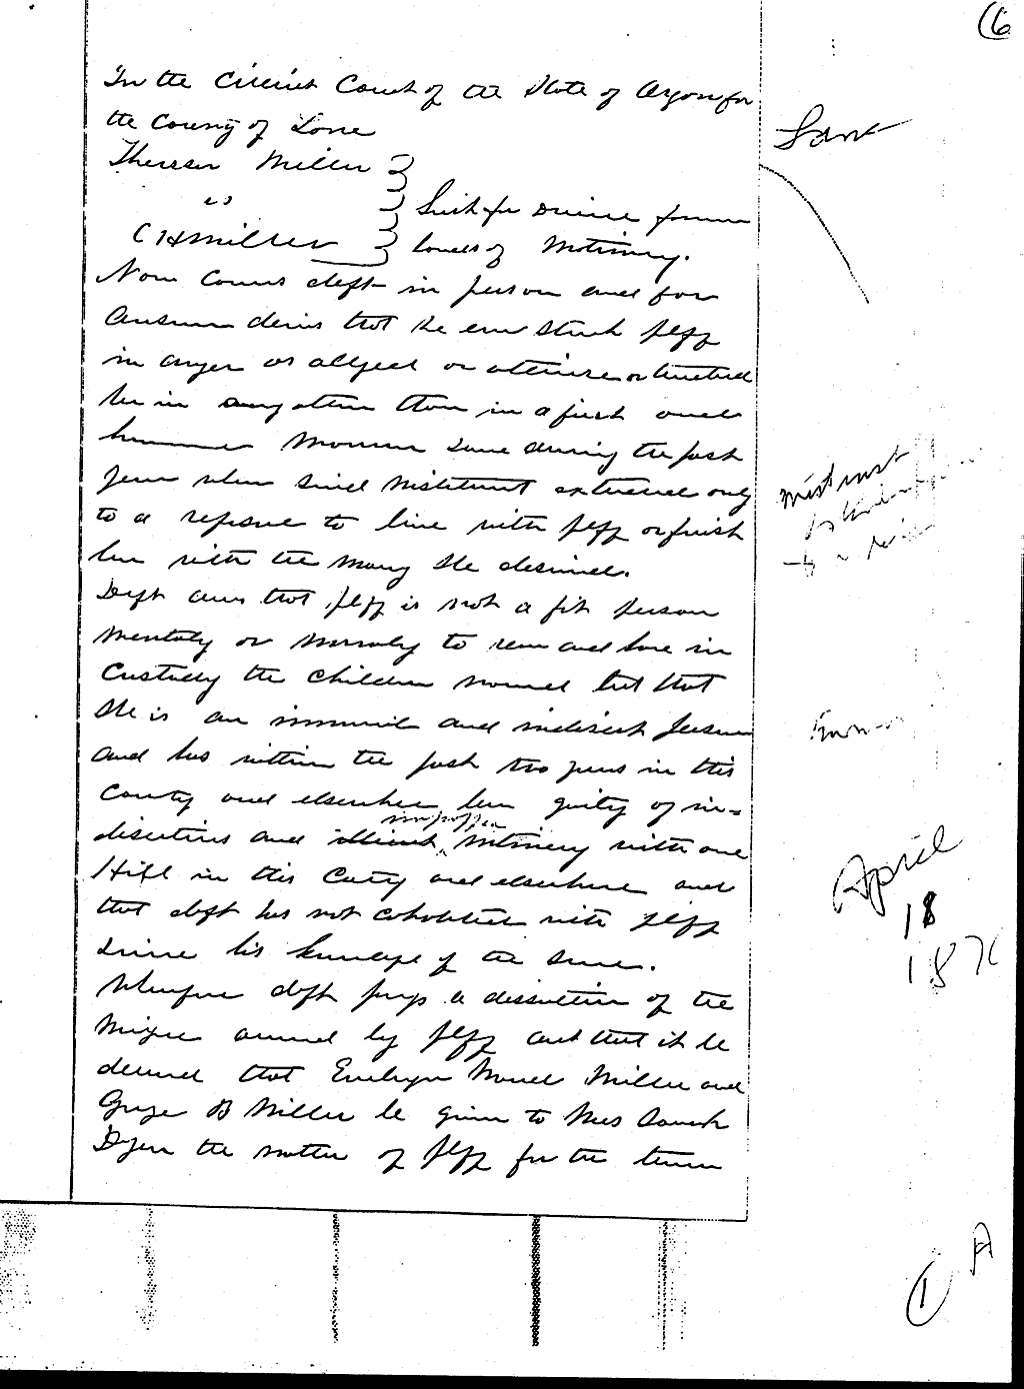 (6
In the Circuit Court of the State of Oregon for
the County of Lane
Theresa Miller
vs
C H Miller
Suit for Divorce from
bonds of Matrimony.
Now comes deft in person and for
answer denies that he ever struck plff
in anger as alleged or otherwise or treated
her in any other than in a just and
humane manner save during the past
year when said mistreatment extended only
to a refusal to live with plff or furnish
her with the money she desired.
Deft avers that plff is not a fit person
mentaly or moraly to rear and have in
custody the children named but that
she is an immoral and indiscreet person
and has within the past two years in this
County and elsewhere been guilty of in=
discretions and illicit improper intimacy with one
Hill in this County and elsewhere and
that deft has not cohabited with plff
since his knowledge of the same.
Wherefore deft prays a dissolution of the
marriage by plff and that it be
decreed that Evelyn Maud Miller and
George B Miller be given to Mrs Sarah
Dyer the mother of plff for the term
Lane
mistreat
April
18
1870
A
1